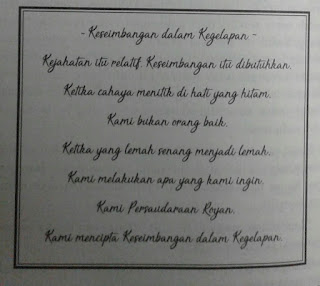 - Keseimbangan dalam Kegelapan -
Kejahatan itu relatif. Keseimbangan itu dibutuhkan.
Ketika cahaya menitik di hati yang hitam.
Kami bukan orang baik.
Ketika yang lemah senang menjadi lemah.
Kami melakukan apa yang kami ingin.
Kami Persaudaraan Royan.
Kami mencipta Keseimbangan dalam Kegelapan.